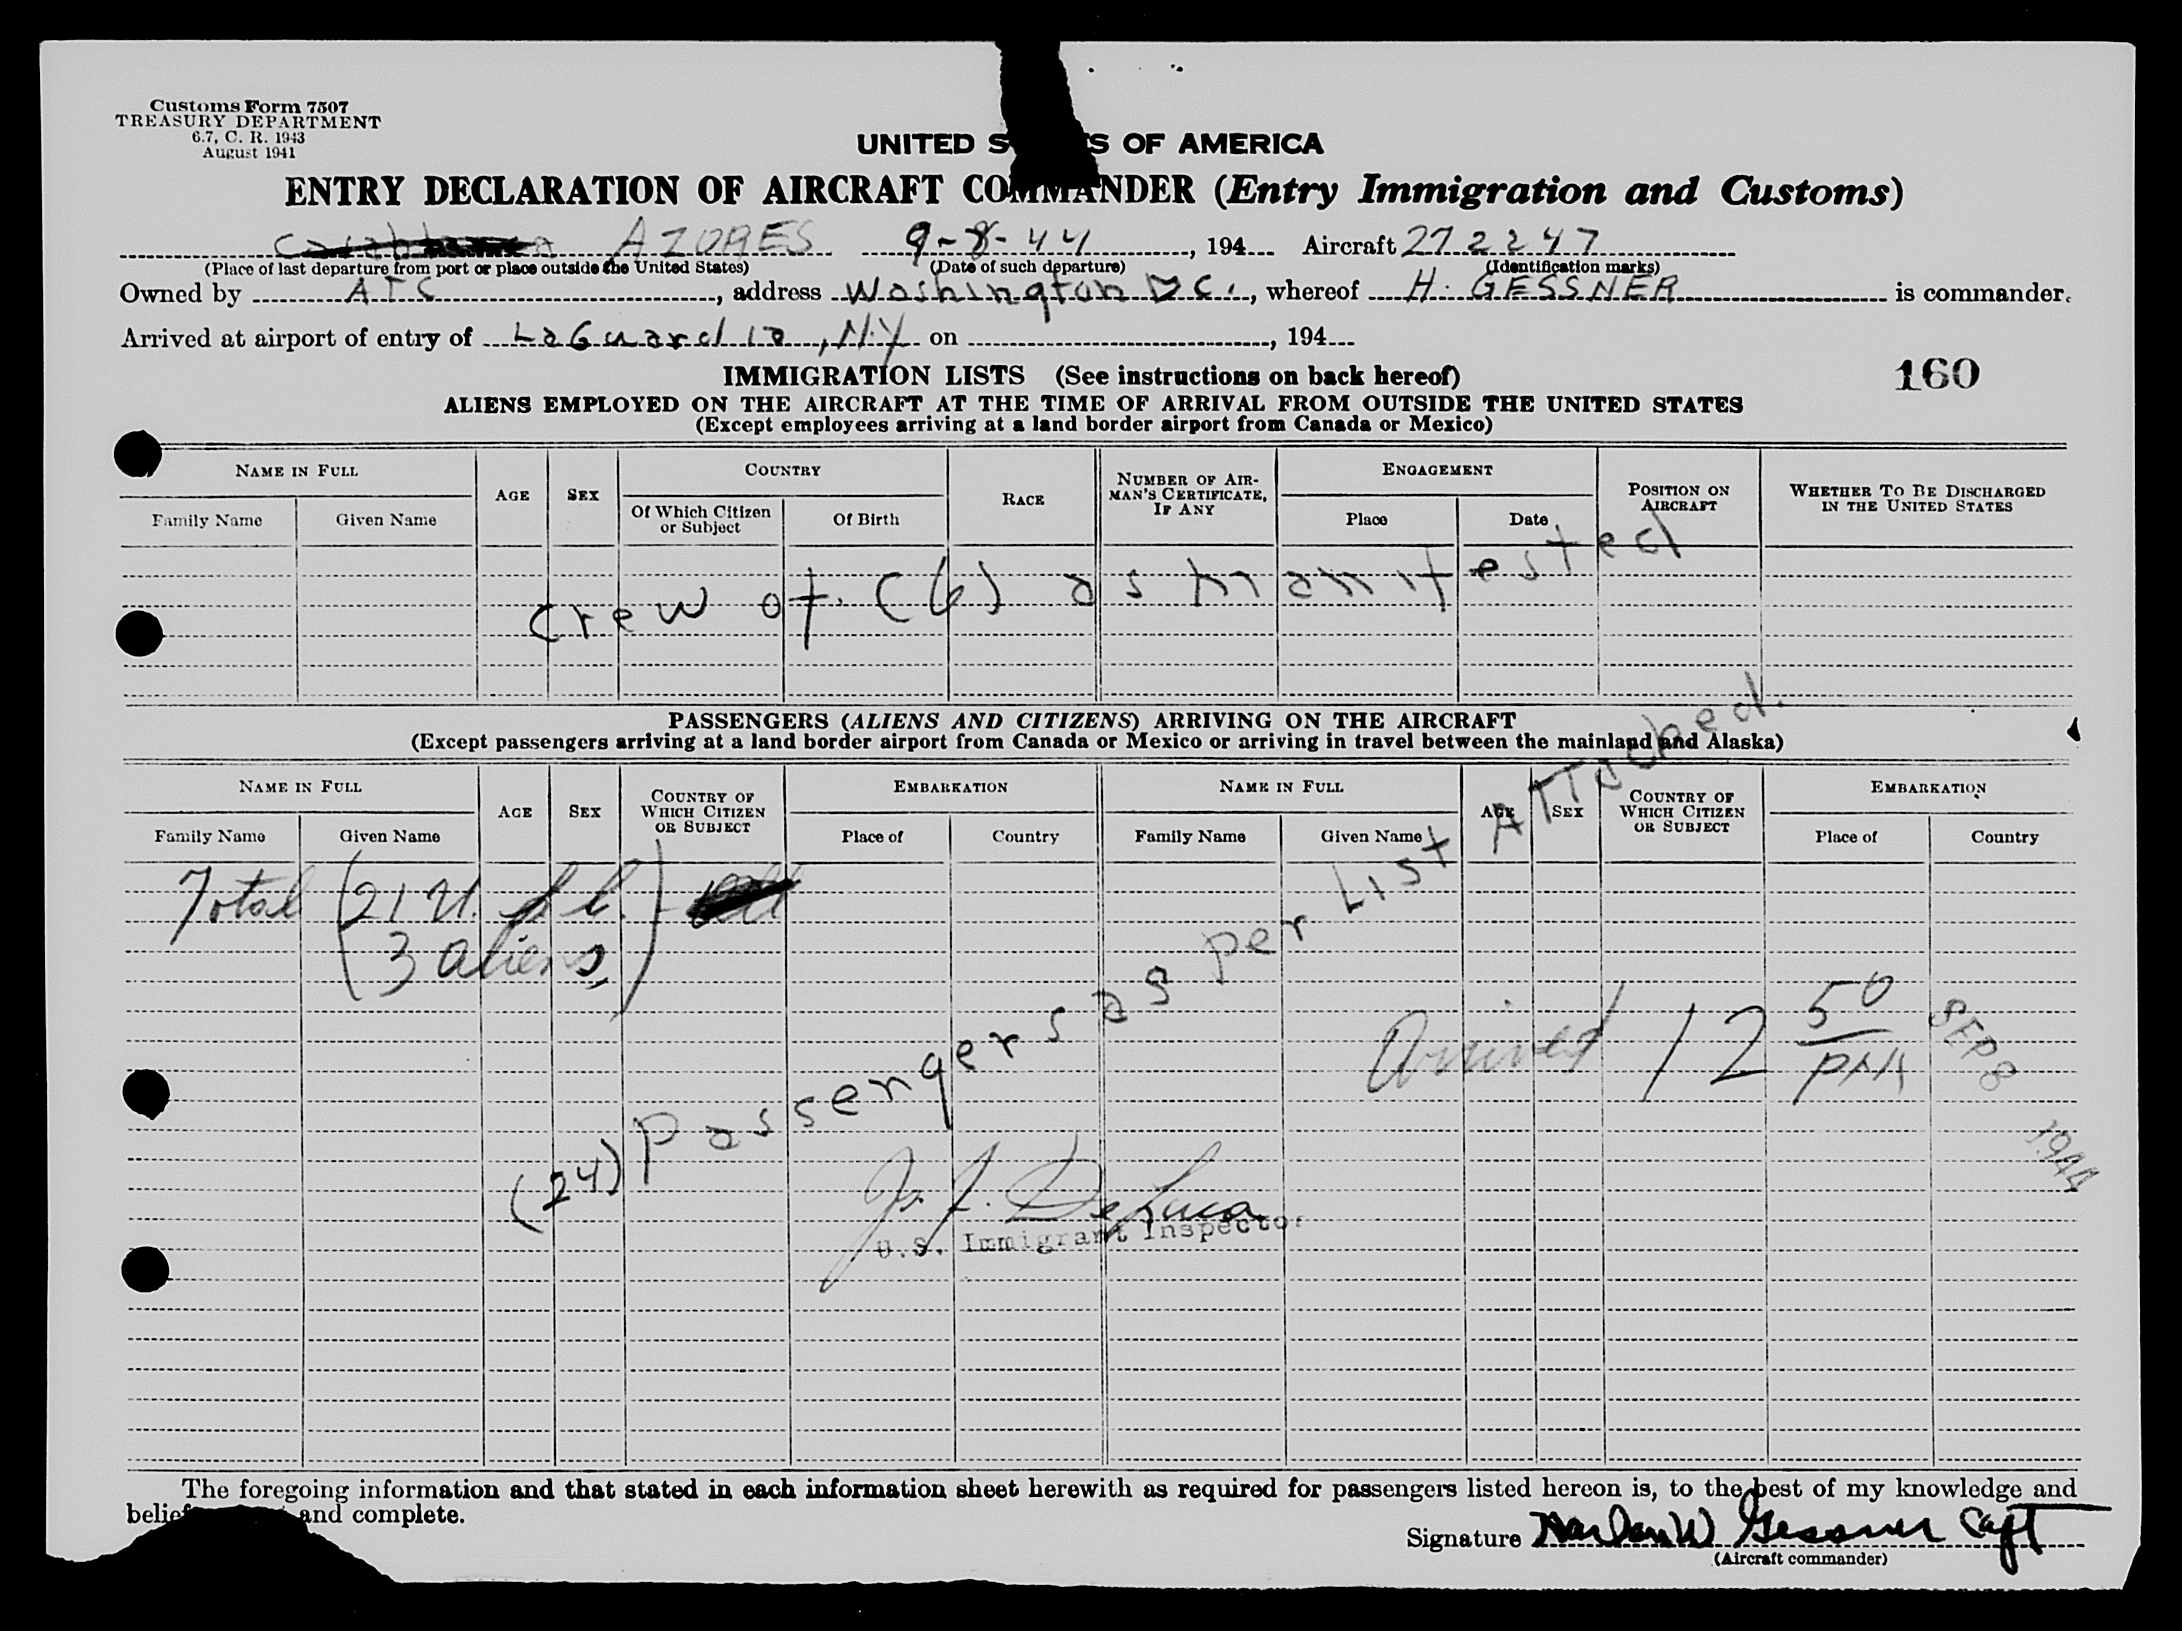 Customs Form 7507
TREASURY DEPARTMENT
6.7, C. R. 1943
August 1941
UNITED S S OF AMERICA
ENTRY DECLARATION OF AIRCRAFT COMMANDER (Entry Immigration and Customs)
AZORES 9-8-44, 194 Aircraft 272247
(Place of last departure from port or place outside the United States) (Date of such departure) (Identification marks)
Owned by ATC, address Washington D.C., whereof H. GESSNER is commander.
Arrived at airport of entry of LaGuardia, N.Y on , 194
160
IMMIGRATION LISTS (See instructions on back hereof)
ALIENS EMPLOYED ON THE AIRCRAFT AT THE TIME OF ARRIVAL FROM OUTSIDE THE UNITED STATES
(Except employees arriving at a land border airport from Canada or Mexico)
NAME IN FULL AGE SEX COUNTRY RACE NUMBER OF AIRMAN'S CERTIFICATE, IF ANY ENGAGEMENT POSITION ON AIRCRAFT WHETHER TO BE DISCHARGED IN THE UNITED STATES
Family Name Given Name Of Which Citizen or Subject Of Birth Place Date
Crew of (6) as manifested
PASSENGERS (ALIENS AND CITIZENS) ARRIVING ON THE AIRCRAFT
(Except passengers arriving at a land border airport from Canada or Mexico or arriving in travel between the mainland and Alaska)
NAME IN FULL AGE SEX COUNTRY OF WHICH CITIZEN OR SUBJECT EMBARKATION NAME IN FULL AGE SEX COUNTRY OF WHICH CITIZEN OR SUBJECT EMBARKATION
Family Name Given Name Place of Country Family Name Given Name Place of Country
Total (21 U.S.C.)
(3 aliens)
(24) Passengers as per List ATTached.
Arrived 12 50 PM SEP 8 1944
J. J. DeLuca
U.S. Immigrant Inspector
The foregoing information and that stated in each information sheet herewith as required for passengers listed hereon is, to the best of my knowledge and
belief and complete.
Signature Harlan W Gessner Capt
(Aircraft commander)